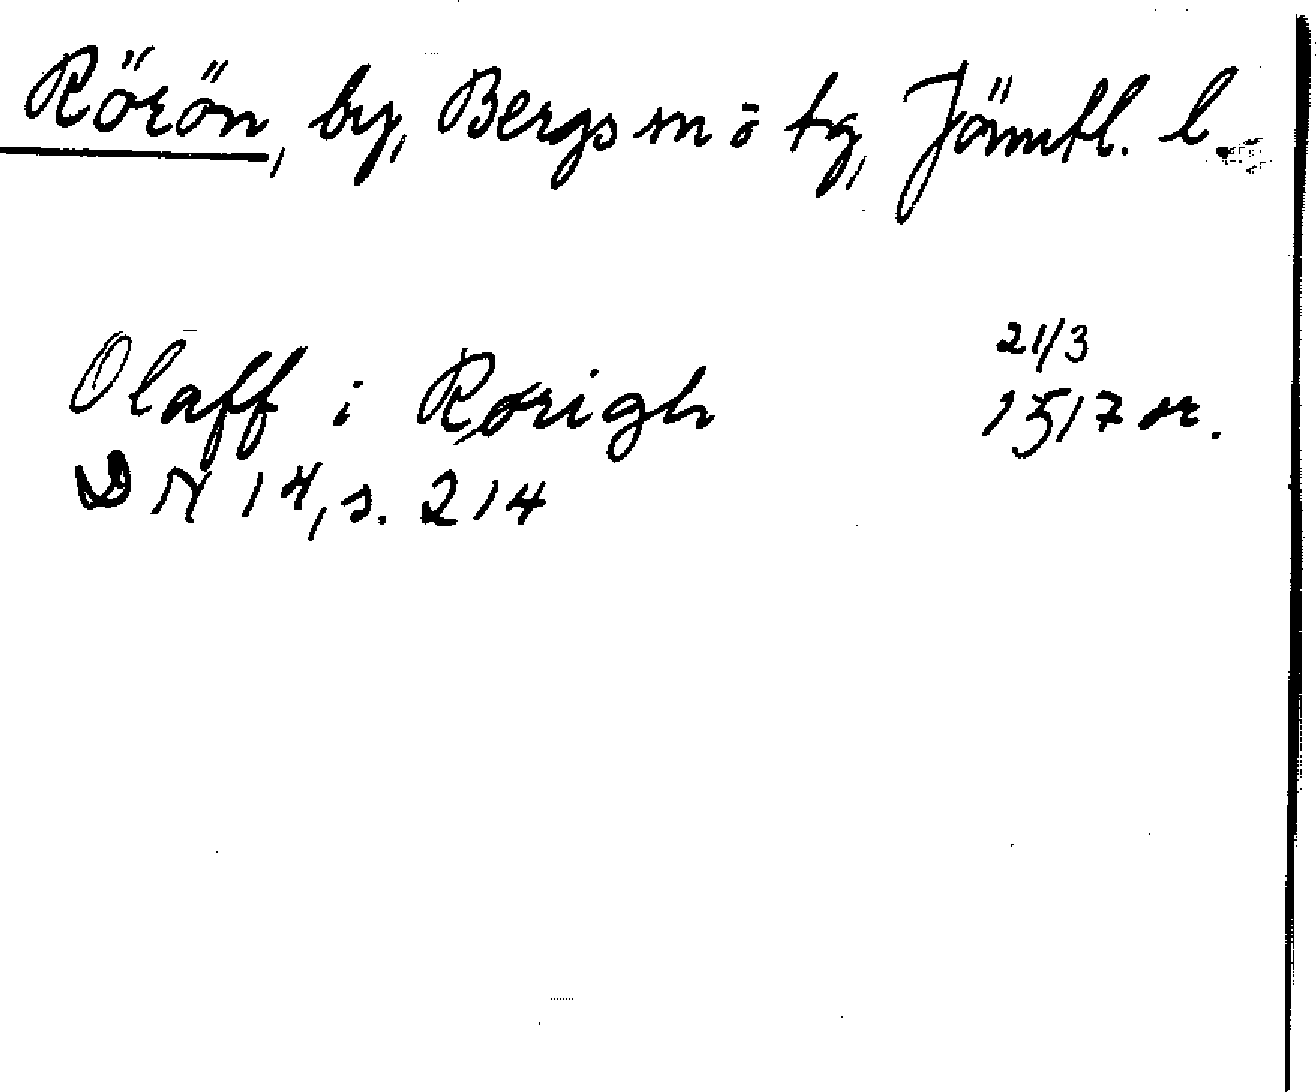 Rörön, by, Bergs sn o tg, Jämtl. l.
Olaff i Rørigh 21/3 1517 or.
DN 14, s. 214